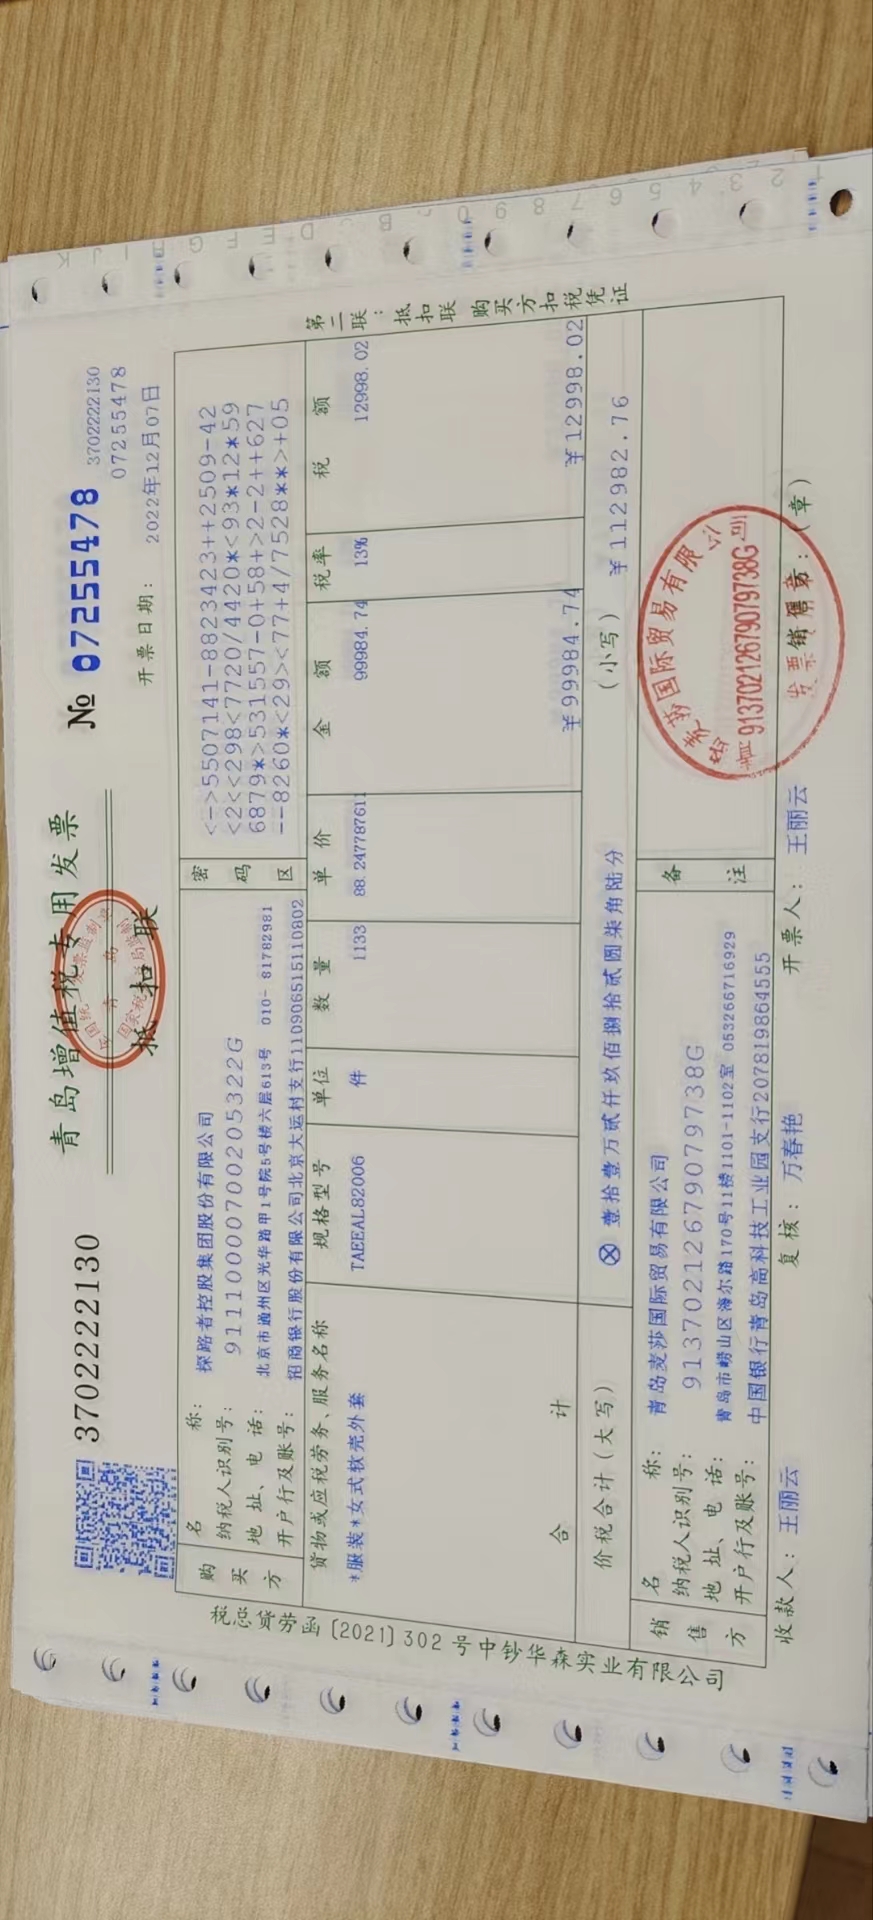 3702222130
青岛增值税专用发票
抵扣联
№ 07255478
3702222130
07255478
开票日期: 2022年12月07日
购买方
名称: 探路者控股集团股份有限公司
纳税人识别号: 91110000700205322G
地址、电话: 北京市通州区光华路甲1号院5号楼六层613号 010-81782981
开户行及账号: 招商银行股份有限公司北京大运村支行110906515110802
密码区
<->5507141-8823423++2509-42
<2<<298<7720/4420*<93*12*59
6879*>531557-0+58+>2-2++627
--8260*<29><77+4/7528**>+05
货物或应税劳务、服务名称 规格型号 单位 数量 单价 金额 税率 税额
*服装*女式软壳外套 TAEEAL82006 件 1133 88.247787611 99984.74 13% 12998.02
合计 ¥99984.74 ¥12998.02
价税合计(大写) ⊗壹拾壹万贰仟玖佰捌拾贰圆柒角陆分 (小写) ¥112982.76
销售方
名称: 青岛麦莎国际贸易有限公司
纳税人识别号: 91370212679079738G
地址、电话: 青岛市崂山区海尔路170号11楼1101-1102室 053266716929
开户行及账号: 中国银行青岛高科技工业园支行207819864555
备注
收款人: 王丽云 复核: 万春艳 开票人: 王丽云 销售方: (章)
91370212679079738G
发票专用章
第二联: 抵扣联 购买方扣税凭证
税总货劳函[2021]302号中钞华森实业有限公司